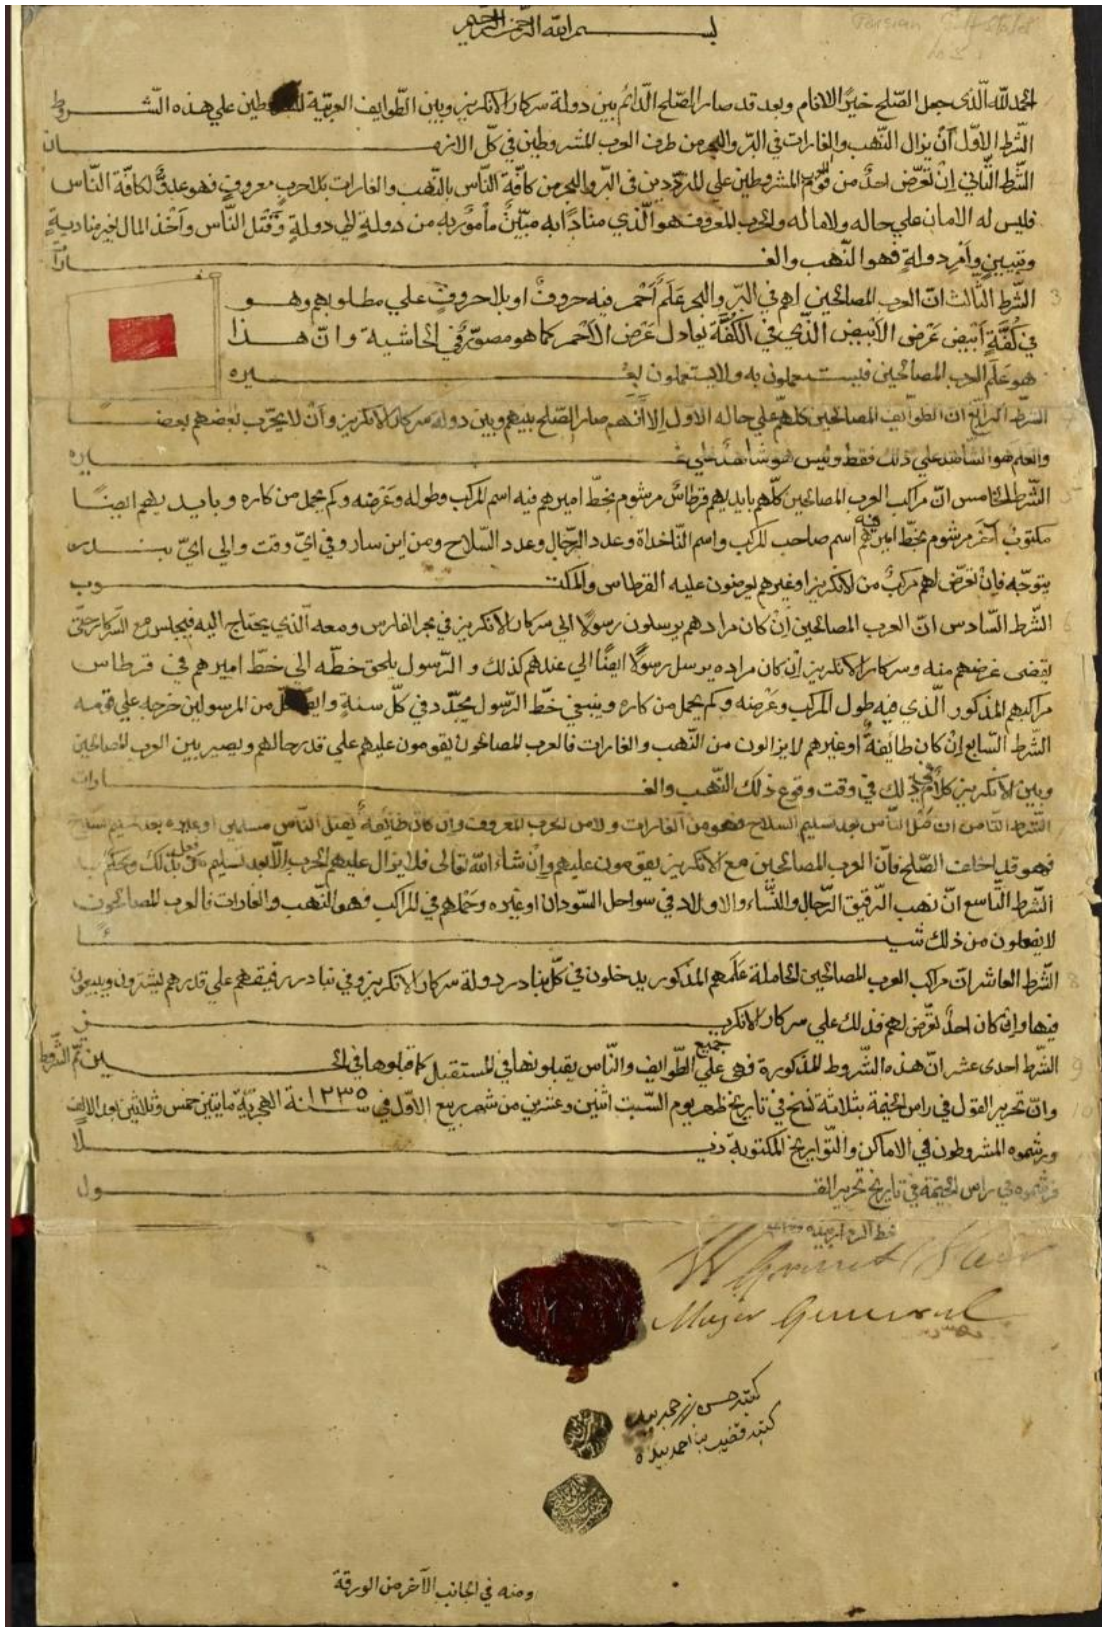 بسم الله الرحمن الرحيم
Persian Gulf States
الحمد لله الّذي جعل الصّلح خيرًا للانام وبعد قد صار الصّلح الدّائم بين دولة سركار الانكريز وبين الطّوايف العربيّة المشروطين علي هذه الشّــروط
الشّرط الاوّل أنْ يزال النّهب والغارات في البرّ والبحر من طرف العرب المشروطين في كلّ الازمـــان
2 الشّرط الثّاني إنْ تعرّض احدٌ من قوم العرب المشروطين علي المتردّدين في البرّ والبحر من كآفّة النّاس بالنّهب والغارات بلا حربٍ معروفٍ فهو عدوٌّ لكافّة النّاس
فليس له الامان علي حاله ولا ماله والحرب المعروف هو الّذي منادًا به مبيّنٌ مأمورٌ به من دولةٍ الي دولةٍ وَقَتل النّاس وأخذ المال بغير مناديةٍ
وتبيينٍ وأمر دولةٍ فهو النّهب والغــــارات
3 الشّرط الثّالث انّ العرب المصالحين لهم في البرّ والبحر عَلَم أحمر فيه حروفٌ او بلا حروفٍ علي مطلوبهم وهــو
في كُفّةٍ أبيض عَرَض الأبيض الّذي في الكفّة يعادل عَرَض الأحمر كما هو مصوّرٌ في الحاشية وانّ هـــذا
هو عَلَم العرب المصالحين فيستعملون به ولا يستعملون بغـــيره
4 الشّرط الرّابع انّ الطّوايف المصالحين كلّهم علي حاله الاول إلّا أنّهم صار الصّلح بينهم وبين دولة سركار الانكريز وأنْ لا يحرّب بعضهم بعضـــًا
والعلم هو الشّاهد علي ذلك فقط وليس هو شاهدٌ علي غـــيره
5 الشّرط الخامس انّ مراكب العرب المصالحين كلّهم بايديهم قرطاسٌ مرشوم بخطّ اميرهم فيه اسم المركب وطوله وعَرَضه وكم يحمل من كاره وبايديهم ايضًـا
مكتوبٌ آخر مرشوم بخطّ اميرهم فيه اسم صاحب المركب واسم النّاخداة وعدد الرّجال وعدد السّلاح ومن اين سار وفي ايّ وقت والي ايّ بنـــدر
يتوجّه فإنْ تعرّض لهم مركبٌ من الانكريز او غيرهم يعرضون عليه القرطاس والمكتـــوب
6 الشّرط السّادس انّ العرب المصالحين إنْ كان مرادهم يرسلون رسولًا الي سركار الانكريز في بحر الفارس ومعه الّذي يحتاج اليه فيجلس مع السّركار حتّى
يقضى غرضهم منه وسركار الانكريز إنْ كان مراده يرسل رسولًا ايضًا الي عندهم كذلك والرّسول يلحق خطّه الي خطّ اميرهم في قرطاس
مراكبهم المذكور الّذي فيه طول المركب وعَرْضه وكم يحمل من كاره وينبغي خطّ الرّسول يجدّد في كلّ سنةٍ وايضًا كلّ من المرسولين خرجه علي قومه
الشّرط السّابع إنْ كان طائفةٌ او غيرهم لا يزالون من النّهب والغارات فالعرب المصالحون يقومون عليهم علي قدر حالهم ويصير بين العرب المصالحين
وبين الانكريز كلامٌ في ذلك في وقت وقوع ذلك النّهب والغـــارات
الشّرط الثّامن انّ قتل النّاس بعد تسليم السّلاح فهو من الغارات ولا من الحرب المعروف وإن كان طائفةٌ يقتل النّاس مسلمين او غيره بعد تسليم السلاح
فهو قد اخلف الصّلح فانّ العرب المصالحين مع الانكريز يقومون عليهم وإنْ شاء الله تعالى فلا يزال عليهم الحرب إلّا بعد تسليم من فعل بذلك ومن حكم به
الشّرط التّاسع انّ نهب الرّقيق الرّجال والنّساء والاولاد في سواحل السّودان او غيره وحملهم في المراكب فهو النّهب والغارات فالعرب المصالحون
لا يفعلون من ذلك شيـــئًا
8 الشّرط العاشر انّ مراكب العرب المصالحين الحاملة عَلَمهم المذكور يدخلون في كلّ بنادر دولة سركار الانكريز وفي بنادر رفيقهم علي قدرهم يشترون ويبيعون
فيها وإن كان احدٌ تعرّض لهم فذلك علي سركار الانكريـــز
9 الشّرط احدى عشر انّ هذه الشّروط المذكورة فهي علي جميع الطّوايف والنّاس يقبلونها في المستقبل كما قبلوها في الحـــين تمّ الشّروط
10 وانّ تحرير القول في راس الخيمة بثلاثة نسخ في تاريخ ظهر يوم السّبت اثنين وعشرين من شهر ربيع الاوّل في ١٢٣٥ سنة الهجريّة مايتين خمس وثلاثين بعد الالف
ورشموه المشروطون في الاماكن والتّواريخ المكتوبة ذيـــلًا
فرشموه في راس الخيمة في تاريخ تحرير القـــول
Major General
كتبه حسن بن رحمه بيده
كتبه قضيب بن احمد بيده
ومنه في الجانب الآخر من الورقة